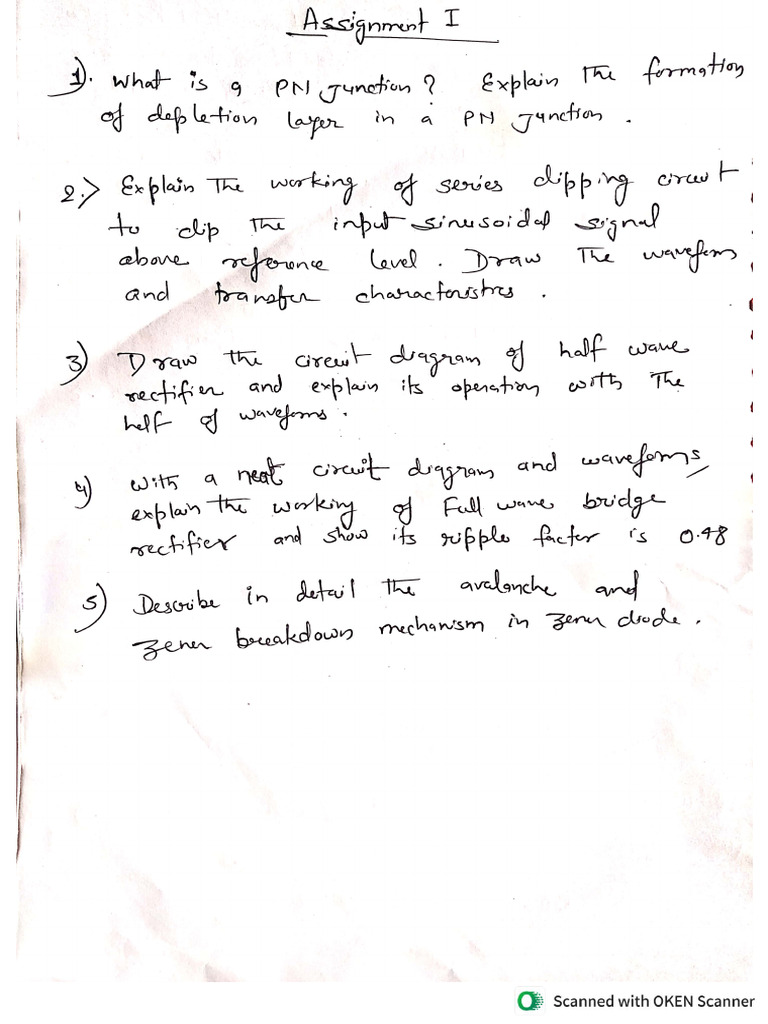 Assignment I
1). What is a PN Junction? Explain the formation
of depletion layer in a PN Junction.
2.> Explain the working of series clipping circuit
to clip the input sinusoidal signal
above reference level. Draw the waveform
and transfer characteristics.
3) Draw the circuit diagram of half wave
rectifier and explain its operation with the
helf of waveforms.
4) with a neat circuit diagram and waveforms,
explain the working of Full wave bridge
rectifier and show its ripple factor is 0.48
5) Describe in detail the avalanche and
zener breakdown mechanism in zener diode.
Scanned with OKEN Scanner